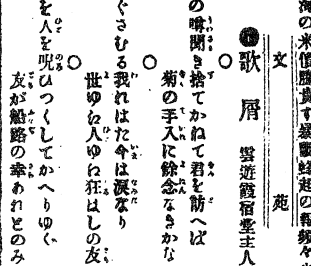 文　苑
歌屑　雲遊霞宿堂主人
○
の噂聞き捨てかねて君を訪へば
菊の手入に餘念なきかな
○
ぐさむる我れはた今は涙なり
世ゆゑ人ゆゑ狂はしの友
○
を人を呪ひつくしてかへりゆく
友が船路の幸あれとのみ